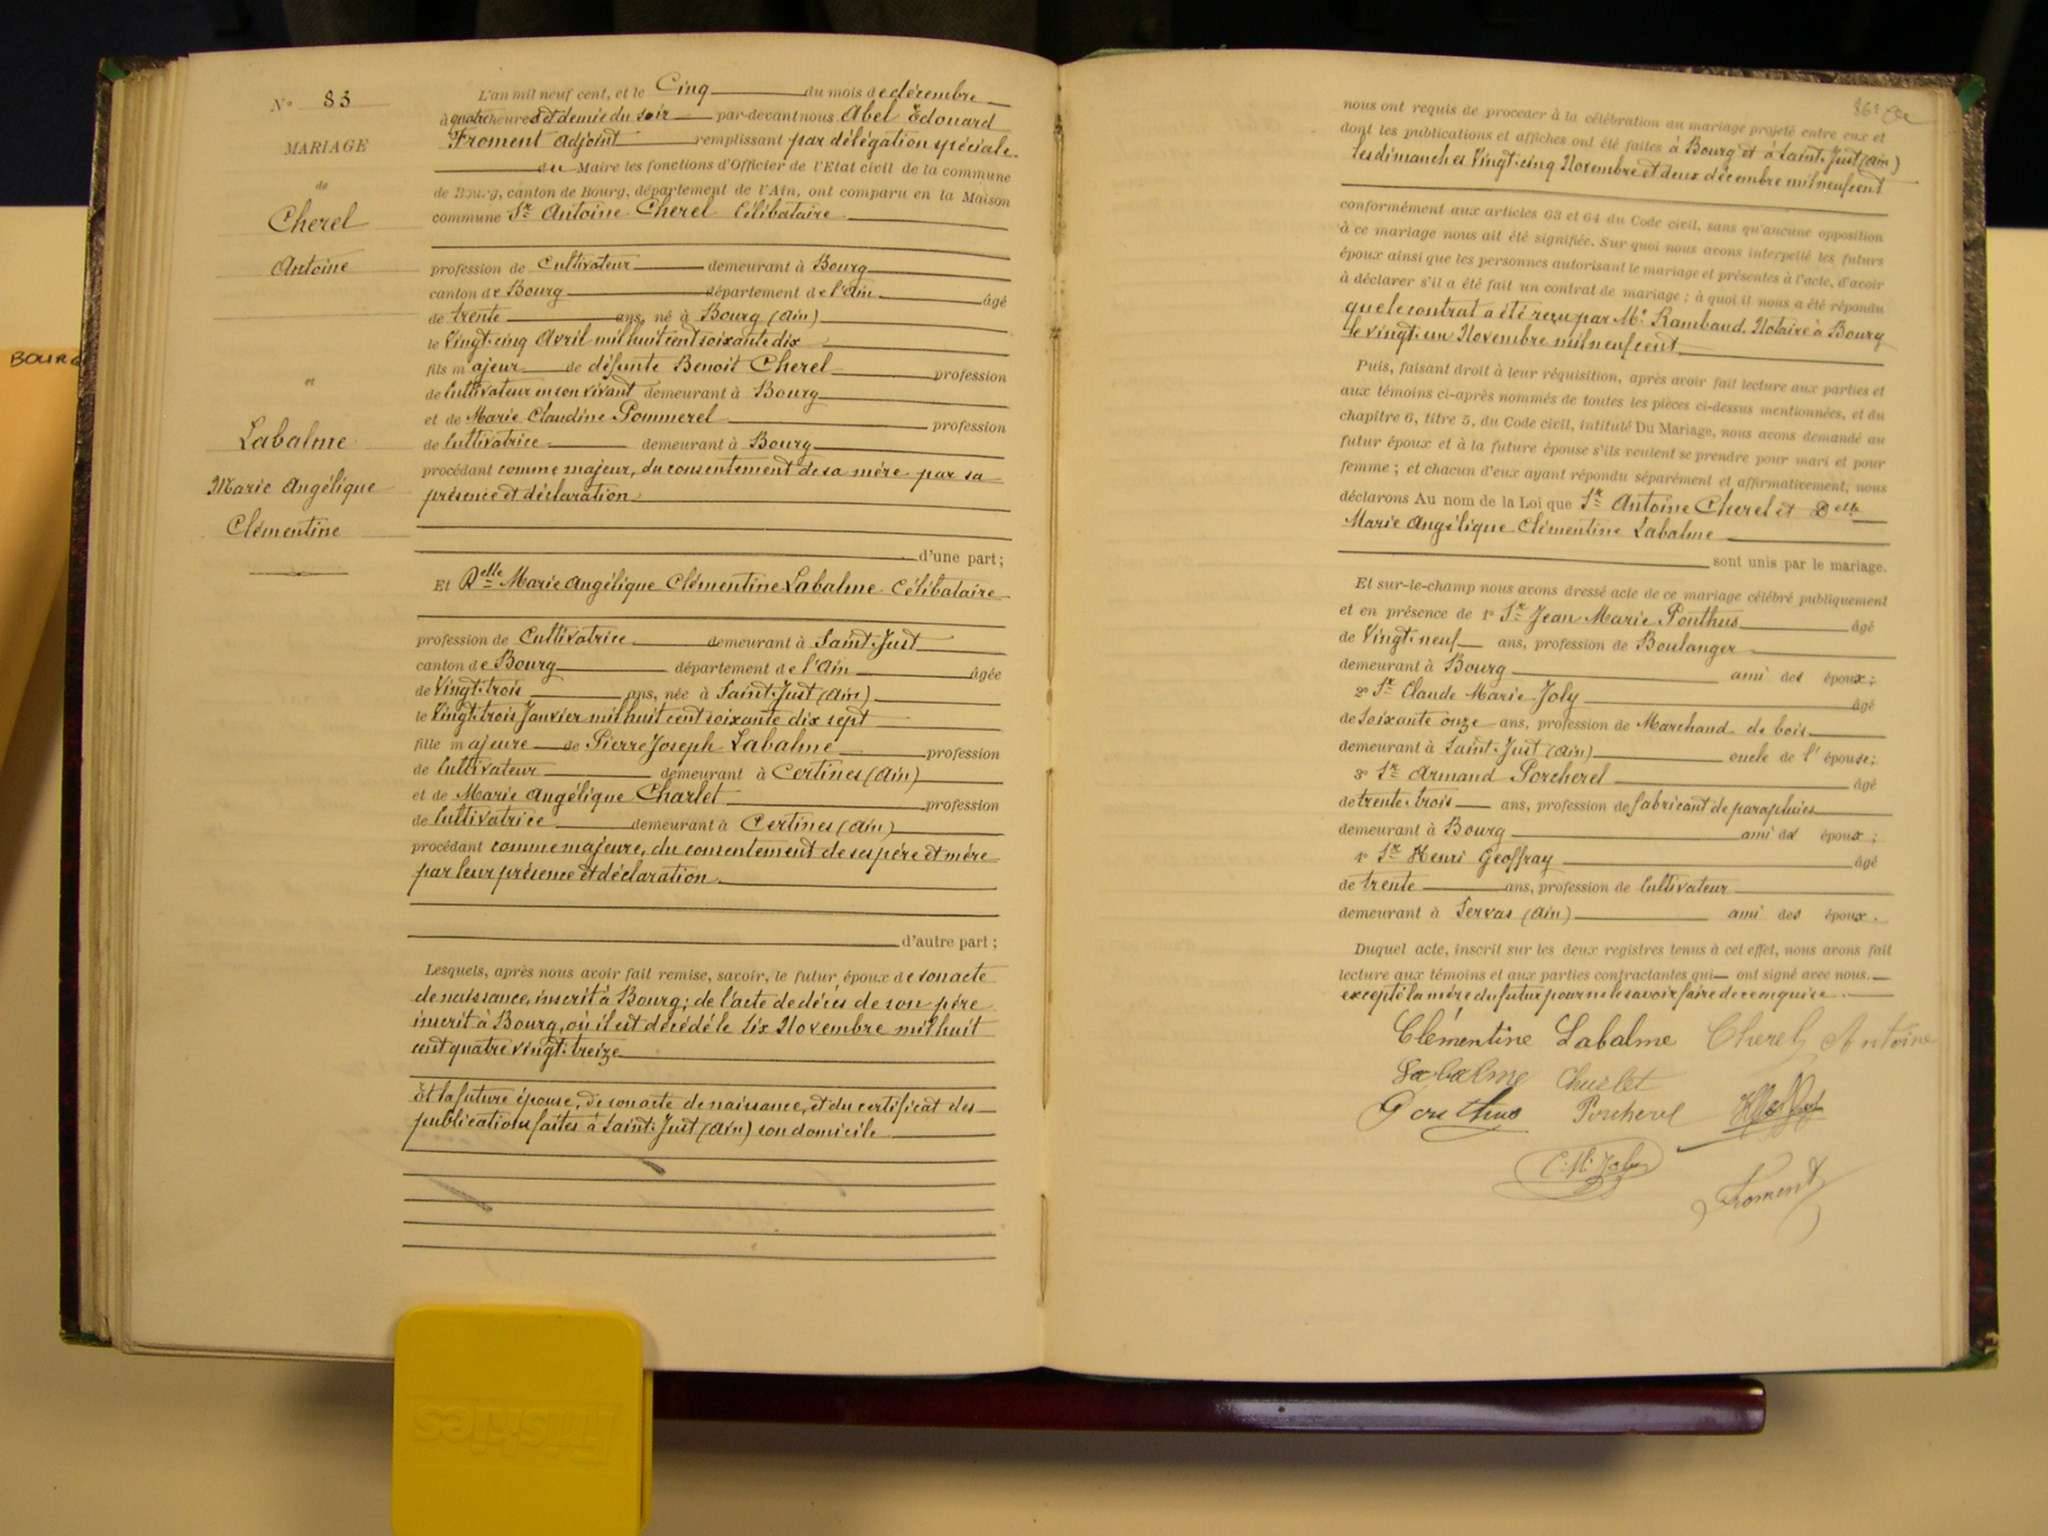 BOURG
N° 85
MARIAGE
de
Cherel
Antoine
et
Labalme
Marie Angélique
Clémentine
L'an mil neuf cent, et le Cinq du mois de décembre
à quatre heures et demie du soir par-devant nous Abel Edouard
Froment Adjoint remplissant par délégation spéciale
du Maire les fonctions d'Officier de l'Etat civil de la commune
de Bourg, canton de Bourg, département de l'Ain, ont comparu en la Maison
commune Sr Antoine Cherel Célibataire
profession de Cultivateur demeurant à Bourg
canton de Bourg département de l'Ain âgé
de trente ans, né à Bourg (Ain)
le Vingt cinq Avril mil huit cent soixante dix
fils majeur de défunte Benoit Cherel profession
de Cultivateur en son vivant demeurant à Bourg
et de Marie Claudine Pommerel profession
de Cultivatrice demeurant à Bourg
procédant comme majeur, du consentement de sa mère par sa
présence et déclaration
d'une part;
Et Delle Marie Angélique Clémentine Labalme Célibataire
profession de Cultivatrice demeurant à Saint-Just
canton de Bourg département de l'Ain âgée
de Vingt-trois ans, née à Saint-Just (Ain)
le Vingt-trois Janvier mil huit cent soixante dix sept
fille majeure de Pierre Joseph Labalme profession
de Cultivateur demeurant à Certines (Ain)
et de Marie Angélique Charlet profession
de Cultivatrice demeurant à Certines (Ain)
procédant comme majeure, du consentement de ses père et mère
par leur présence et déclaration
d'autre part;
Lesquels, après nous avoir fait remise, savoir, le futur époux de son acte
de naissance, inscrit à Bourg; de l'acte de décès de son père
inscrit à Bourg, où il est décédé le six Novembre mil huit
cent quatre vingt-treize
Et la future épouse, de son acte de naissance, et du certificat des
publications faites à Saint-Just (Ain) son domicile
86e
nous ont requis de procéder à la célébration du mariage projeté entre eux et
dont les publications et affiches ont été faites à Bourg et à Saint-Just (Ain)
les dimanches Vingt-cinq Novembre et deux décembre mil neuf cent
conformément aux articles 63 et 64 du Code civil, sans qu'aucune opposition
à ce mariage nous ait été signifiée. Sur quoi nous avons interpellé les futurs
époux ainsi que les personnes autorisant le mariage et présentes à l'acte, d'avoir
à déclarer s'il a été fait un contrat de mariage; à quoi il nous a été répondu
que le contrat a été reçu par Me Rambaud, Notaire à Bourg
le vingt-un Novembre mil neuf cent
Puis, faisant droit à leur réquisition, après avoir fait lecture aux parties et
aux témoins ci-après nommés de toutes les pièces ci-dessus mentionnées, et du
chapitre 6, titre 5, du Code civil, intitulé Du Mariage, nous avons demandé au
futur époux et à la future épouse s'ils veulent se prendre pour mari et pour
femme; et chacun d'eux ayant répondu séparément et affirmativement, nous
déclarons Au nom de la Loi que Sr Antoine Cherel et Delle
Marie Angélique Clémentine Labalme
sont unis par le mariage.
Et sur-le-champ nous avons dressé acte de ce mariage célébré publiquement
et en présence de 1° Sr Jean Marie Ponthus âgé
de Vingt-neuf ans, profession de Boulanger
demeurant à Bourg ami des époux;
2° Sr Claude Marie Joly âgé
de Soixante onze ans, profession de Marchand de bois
demeurant à Saint-Just (Ain) oncle de l'épouse;
3° Sr Armand Porcherel âgé
de trente-trois ans, profession de fabricant de parapluies
demeurant à Bourg ami des époux;
4° Sr Henri Geoffray âgé
de trente ans, profession de Cultivateur
demeurant à Servas (Ain) ami des époux.
Duquel acte, inscrit sur les deux registres tenus à cet effet, nous avons fait
lecture aux témoins et aux parties contractantes qui ont signé avec nous.
excepté la mère du futur pour ne le savoir faire de ce enquise.
Clémentine Labalme Cherel Antoine
Labalme Charlet
Ponthus Porcherel
C. M. Joly
Froment